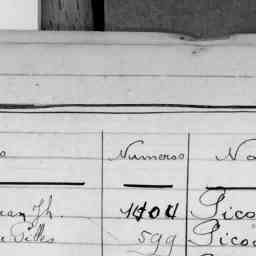 Numeros
ean Jh. 1404 Pico
e Gilles 599 Pico